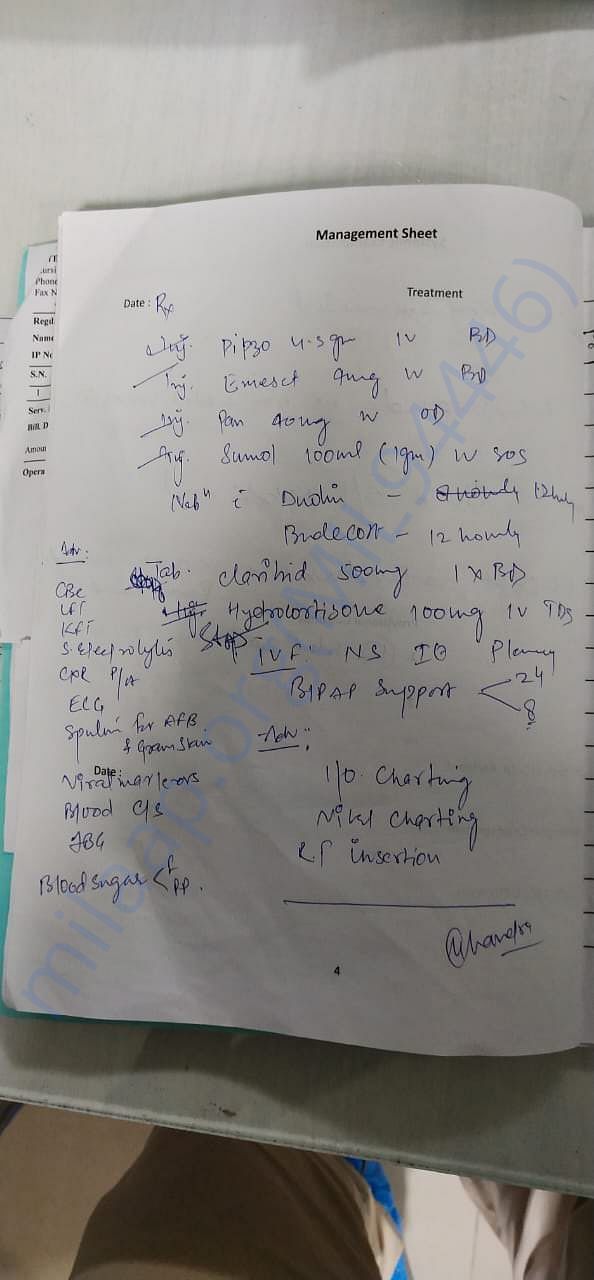 Management Sheet
Date : Rx
Treatment
Inj. Pipzo 4.5gm IV BD
Inj. Emeset 4mg IV BD
Inj. Pan 40mg IV OD
Inj. Sumol 100ml (1gm) IV SOS
Neb" c Duolin - 12 hrly
Budecort - 12 hourly
Tab. Claribid 500mg 1 x BD
Inj. Hydrocortisone 100mg IV TDS
Stop
IVF: NS
BIPAP Support < 24
8
Adv:
CBC
LFT
KFT
S. Electrolytes
CXR P/A
ECG
Sputum for AFB
& Gram Stain
Date :
Viral markers
Blood C/S
ABG
Blood sugar < F
PP.
Adv:
I/O. Charting
Vital Charting
RT insertion
4
Phone
Fax N
Regd
Name
IP No
S.N.
1
Serv.
Bill. D
Amoun
Opera
milaap.org